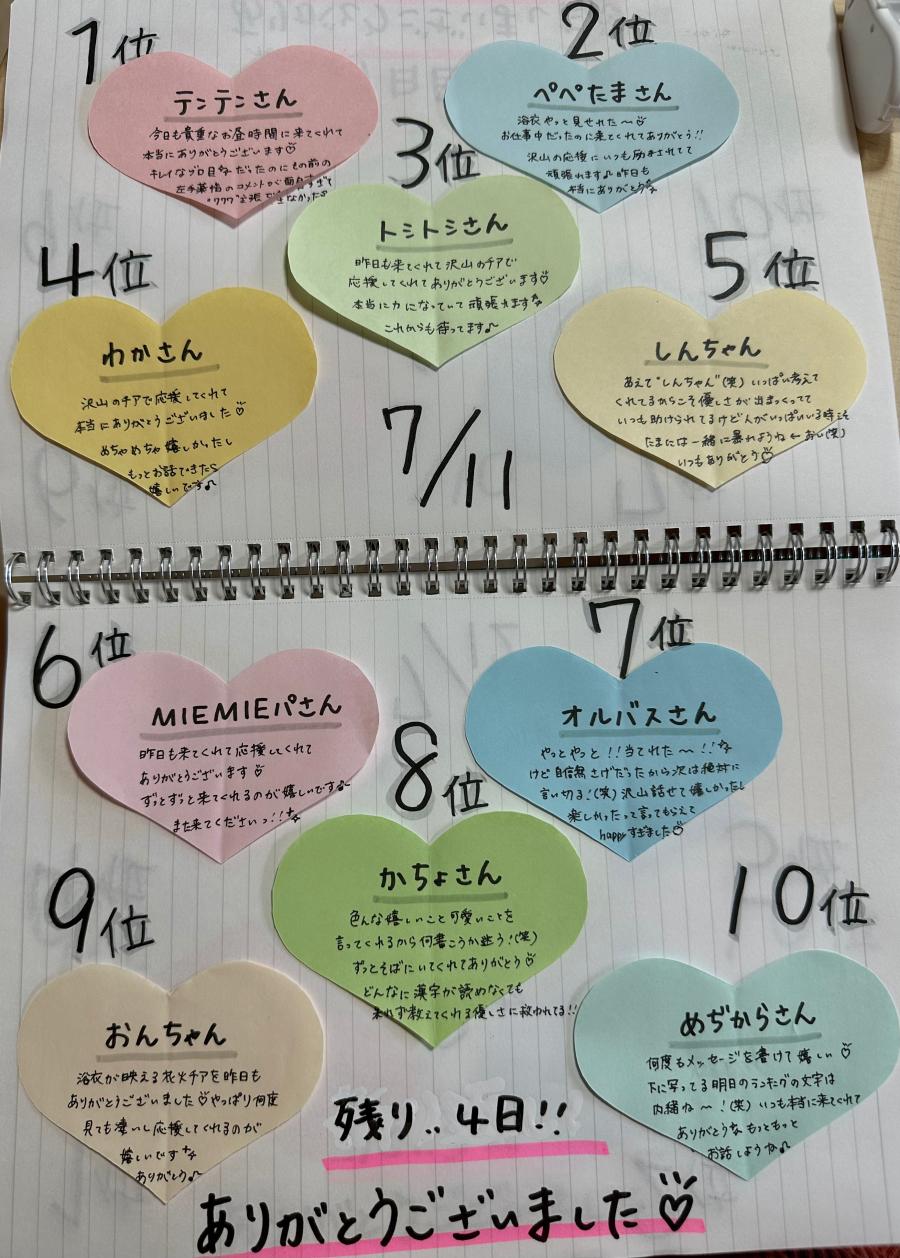 1位
テンテンさん
今日も貴重なお昼時間に来てくれて
本当にありがとうございます♡
キレイなゾロ目 だったのにその前の
左手薬指のコメントが面白すぎて
2位
ペペたまさん
浴衣やっと見せれた〜♡
お仕事中だったのに来てくれてありがとう!!
沢山の応援にいつも励まされてて
頑張れます♪昨日も
本当にありがとう
3位
トシトシさん
昨日も来てくれて沢山のチアで
応援してくれてありがとうございます♡
本当に力になっていて頑張れます
これからも待ってます♪
4位
わかさん
沢山のチアで応援してくれて
本当にありがとうございました♡
めちゃめちゃ嬉しかったし
もっとお話できたら
嬉しいです♪
5位
しんちゃん
あえて"しんちゃん"(笑)いっぱい考えて
くれてるからこそ優しさが出まくってて
いつも助けられてるけど人がいっぱいいる時こそ
たまには一緒に暴れようね←おい(笑)
いつもありがとう♡
7/11
6位
MIEMIEパさん
昨日も来てくれて応援してくれて
ありがとうございます♡
ずっとずっと来てくれるのが嬉しいです
また来てくださいっ!!
7位
オルバスさん
やっとやっと!!当てれた〜!!
けど自信無さげだったから次は絶対に
言い切る!(笑)沢山話せて嬉しかったし
楽しかったって言ってもらえて
happyすぎました♡
8位
かちょさん
色んな嬉しいこと可愛いことを
言ってくれるから何書こうか迷う!(笑)
ずっとそばにいてくれてありがとう♡
どんなに漢字が読めなくても
呆れず教えてくれる優しさに救われてる!!
9位
おんちゃん
浴衣が映える花火チアを昨日も
ありがとうございました♡やっぱり何度
見ても凄いし応援してくれるのが
嬉しいです
ありがとう♪
10位
めぢからさん
何度もメッセージを書けて嬉しい♡
下に写ってる明日のランキングの文字は
内緒ね〜!(笑)いつも本当に来てくれて
ありがとうな もっともっと
お話しような♪
残り..4日!!
ありがとうございました♡